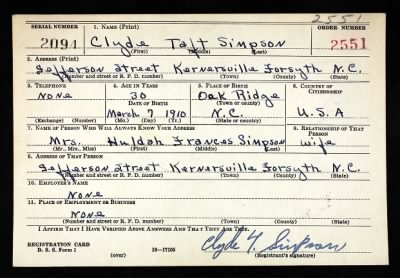 2551
SERIAL NUMBER 1. NAME (Print) ORDER NUMBER
2094 Clyde Taft Simpson 2551
(First) (Middle) (Last)
2. ADDRESS (Print)
Jefferson Street Kernersville Forsyth N.C.
(Number and street or R. F. D. number) (Town) (County) (State)
3. TELEPHONE 4. AGE IN YEARS 5. PLACE OF BIRTH 6. COUNTRY OF CITIZENSHIP
None 30 Oak Ridge
DATE OF BIRTH (Town or county)
March 7 1910 N.C. U.S.A
(Exchange) (Number) (Mo.) (Day) (Yr.) (State or country)
7. NAME OF PERSON WHO WILL ALWAYS KNOW YOUR ADDRESS 8. RELATIONSHIP OF THAT PERSON
Mrs. Huldah Frances Simpson wife
(Mr., Mrs., Miss) (First) (Middle) (Last)
9. ADDRESS OF THAT PERSON
Jefferson Street Kernersville Forsyth N.C.
(Number and street or R. F. D. number) (Town) (County) (State)
10. EMPLOYER'S NAME
None
11. PLACE OF EMPLOYMENT OR BUSINESS
None
(Number and street or R. F. D. number) (Town) (County) (State)
I AFFIRM THAT I HAVE VERIFIED ABOVE ANSWERS AND THAT THEY ARE TRUE.
REGISTRATION CARD
D. S. S. Form 1 16-17105 Clyde T. Simpson
(over) (Registrant's signature)